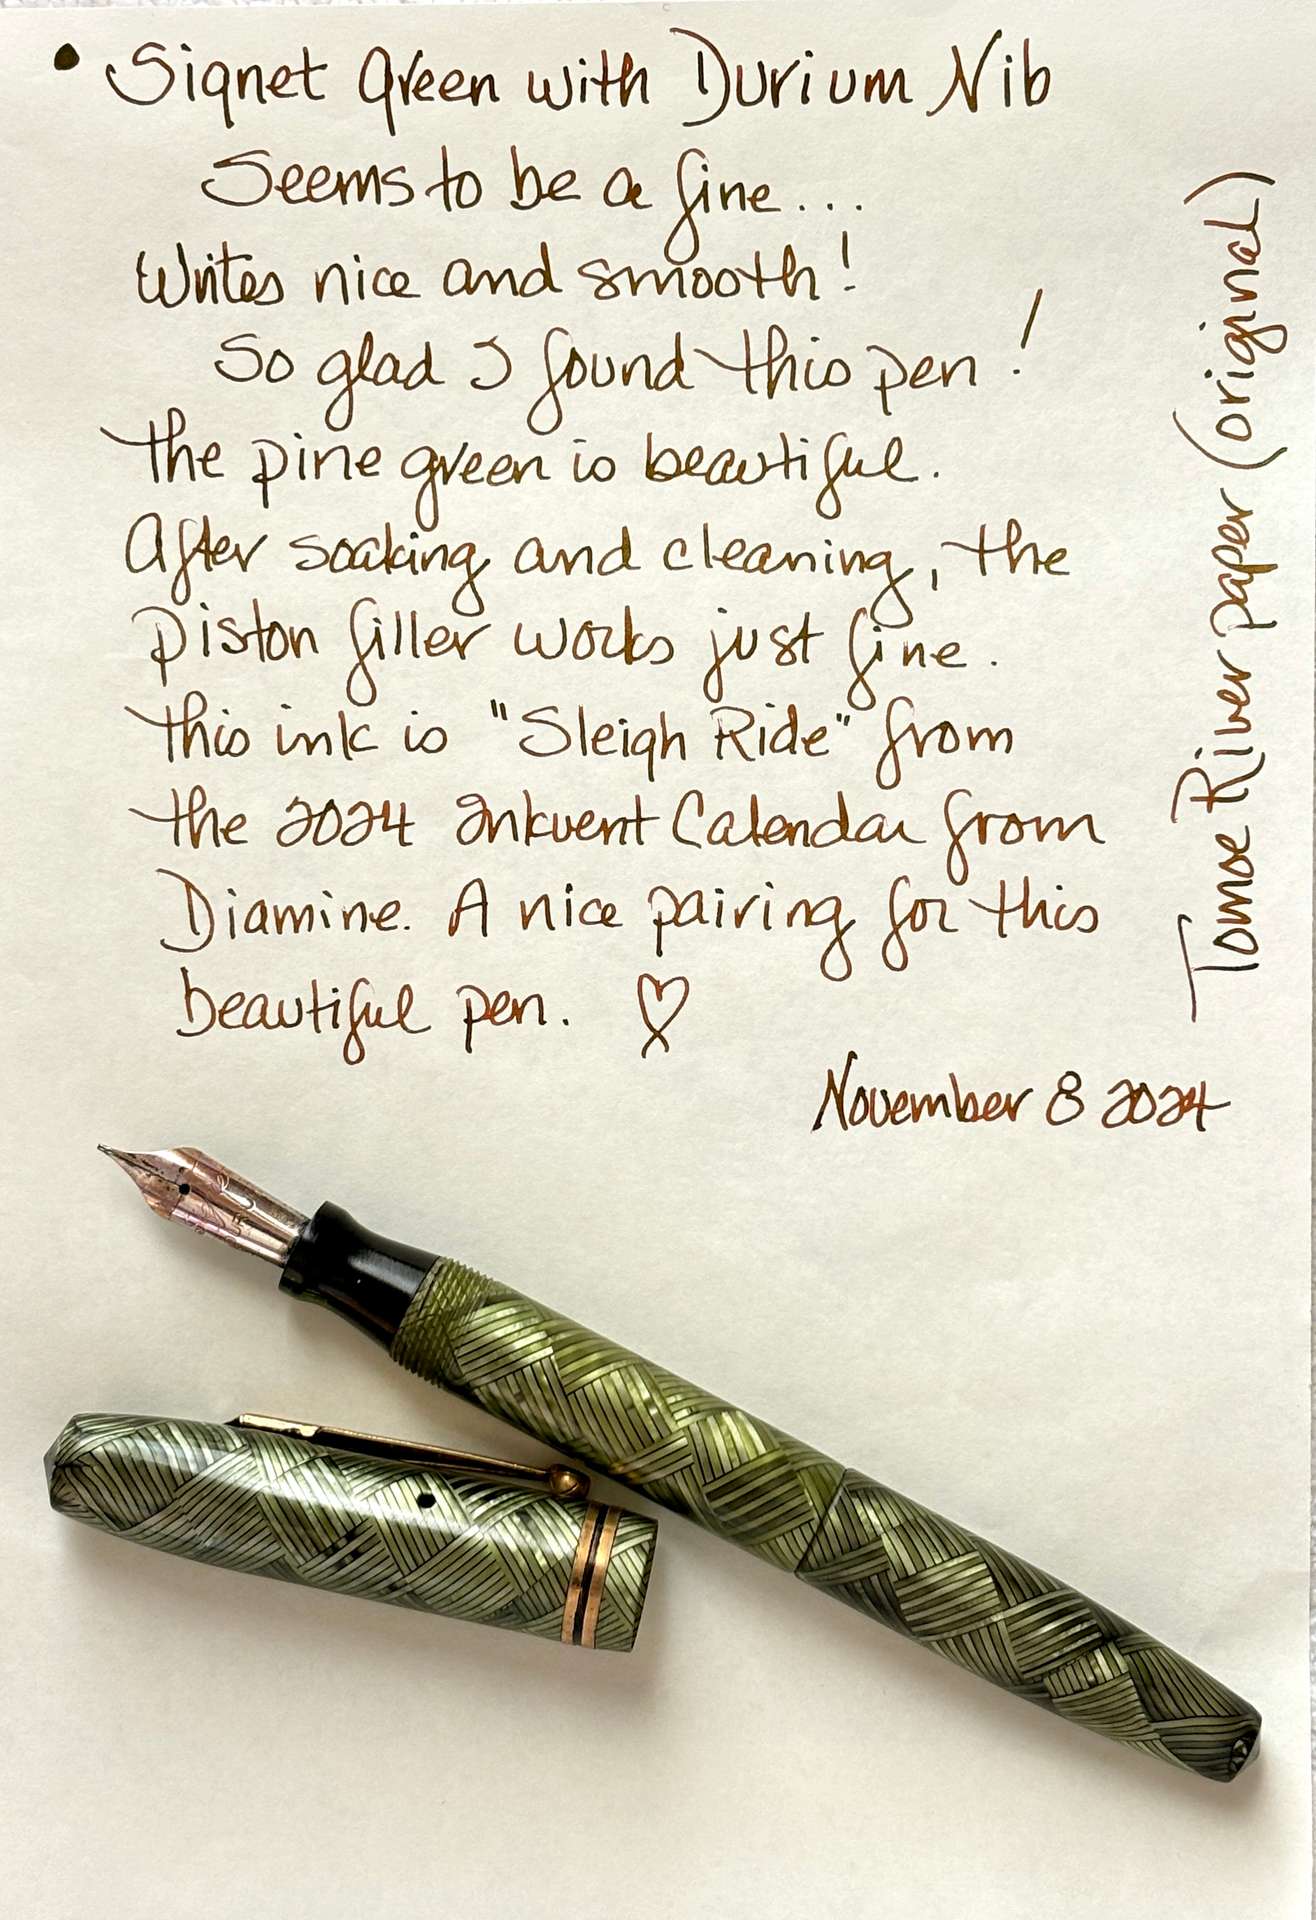 • Signet Green with Durium Nib
Seems to be a fine...
Writes nice and smooth!
So glad I found this pen!
The pine green is beautiful.
After soaking and cleaning, the
piston filler works just fine.
This ink is "Sleigh Ride" from
the 2024 Inkvent Calendar from
Diamine. A nice pairing for this
beautiful pen. ♡
November 8 2024
Tomoe River paper (original)